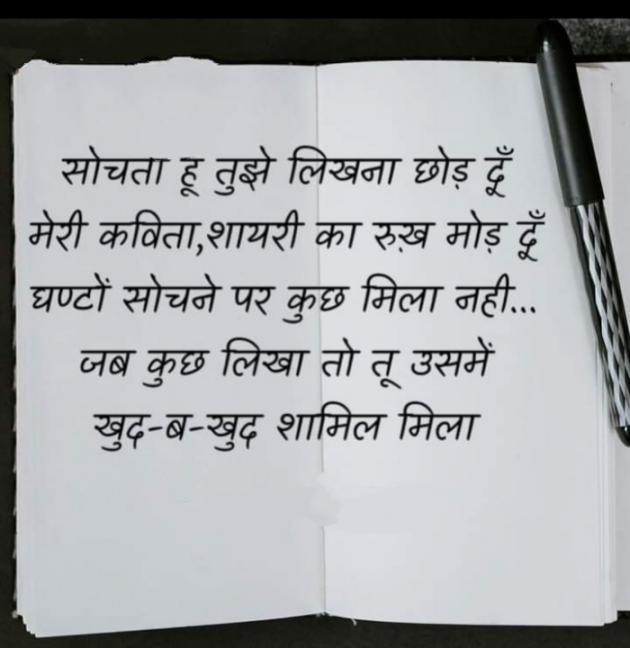 सोचता हू तुझे लिखना छोड़ दूँ
मेरी कविता,शायरी का रुख़ मोड़ दूँ
घण्टों सोचने पर कुछ मिला नही...
जब कुछ लिखा तो तू उसमें
खुद-ब-खुद शामिल मिला